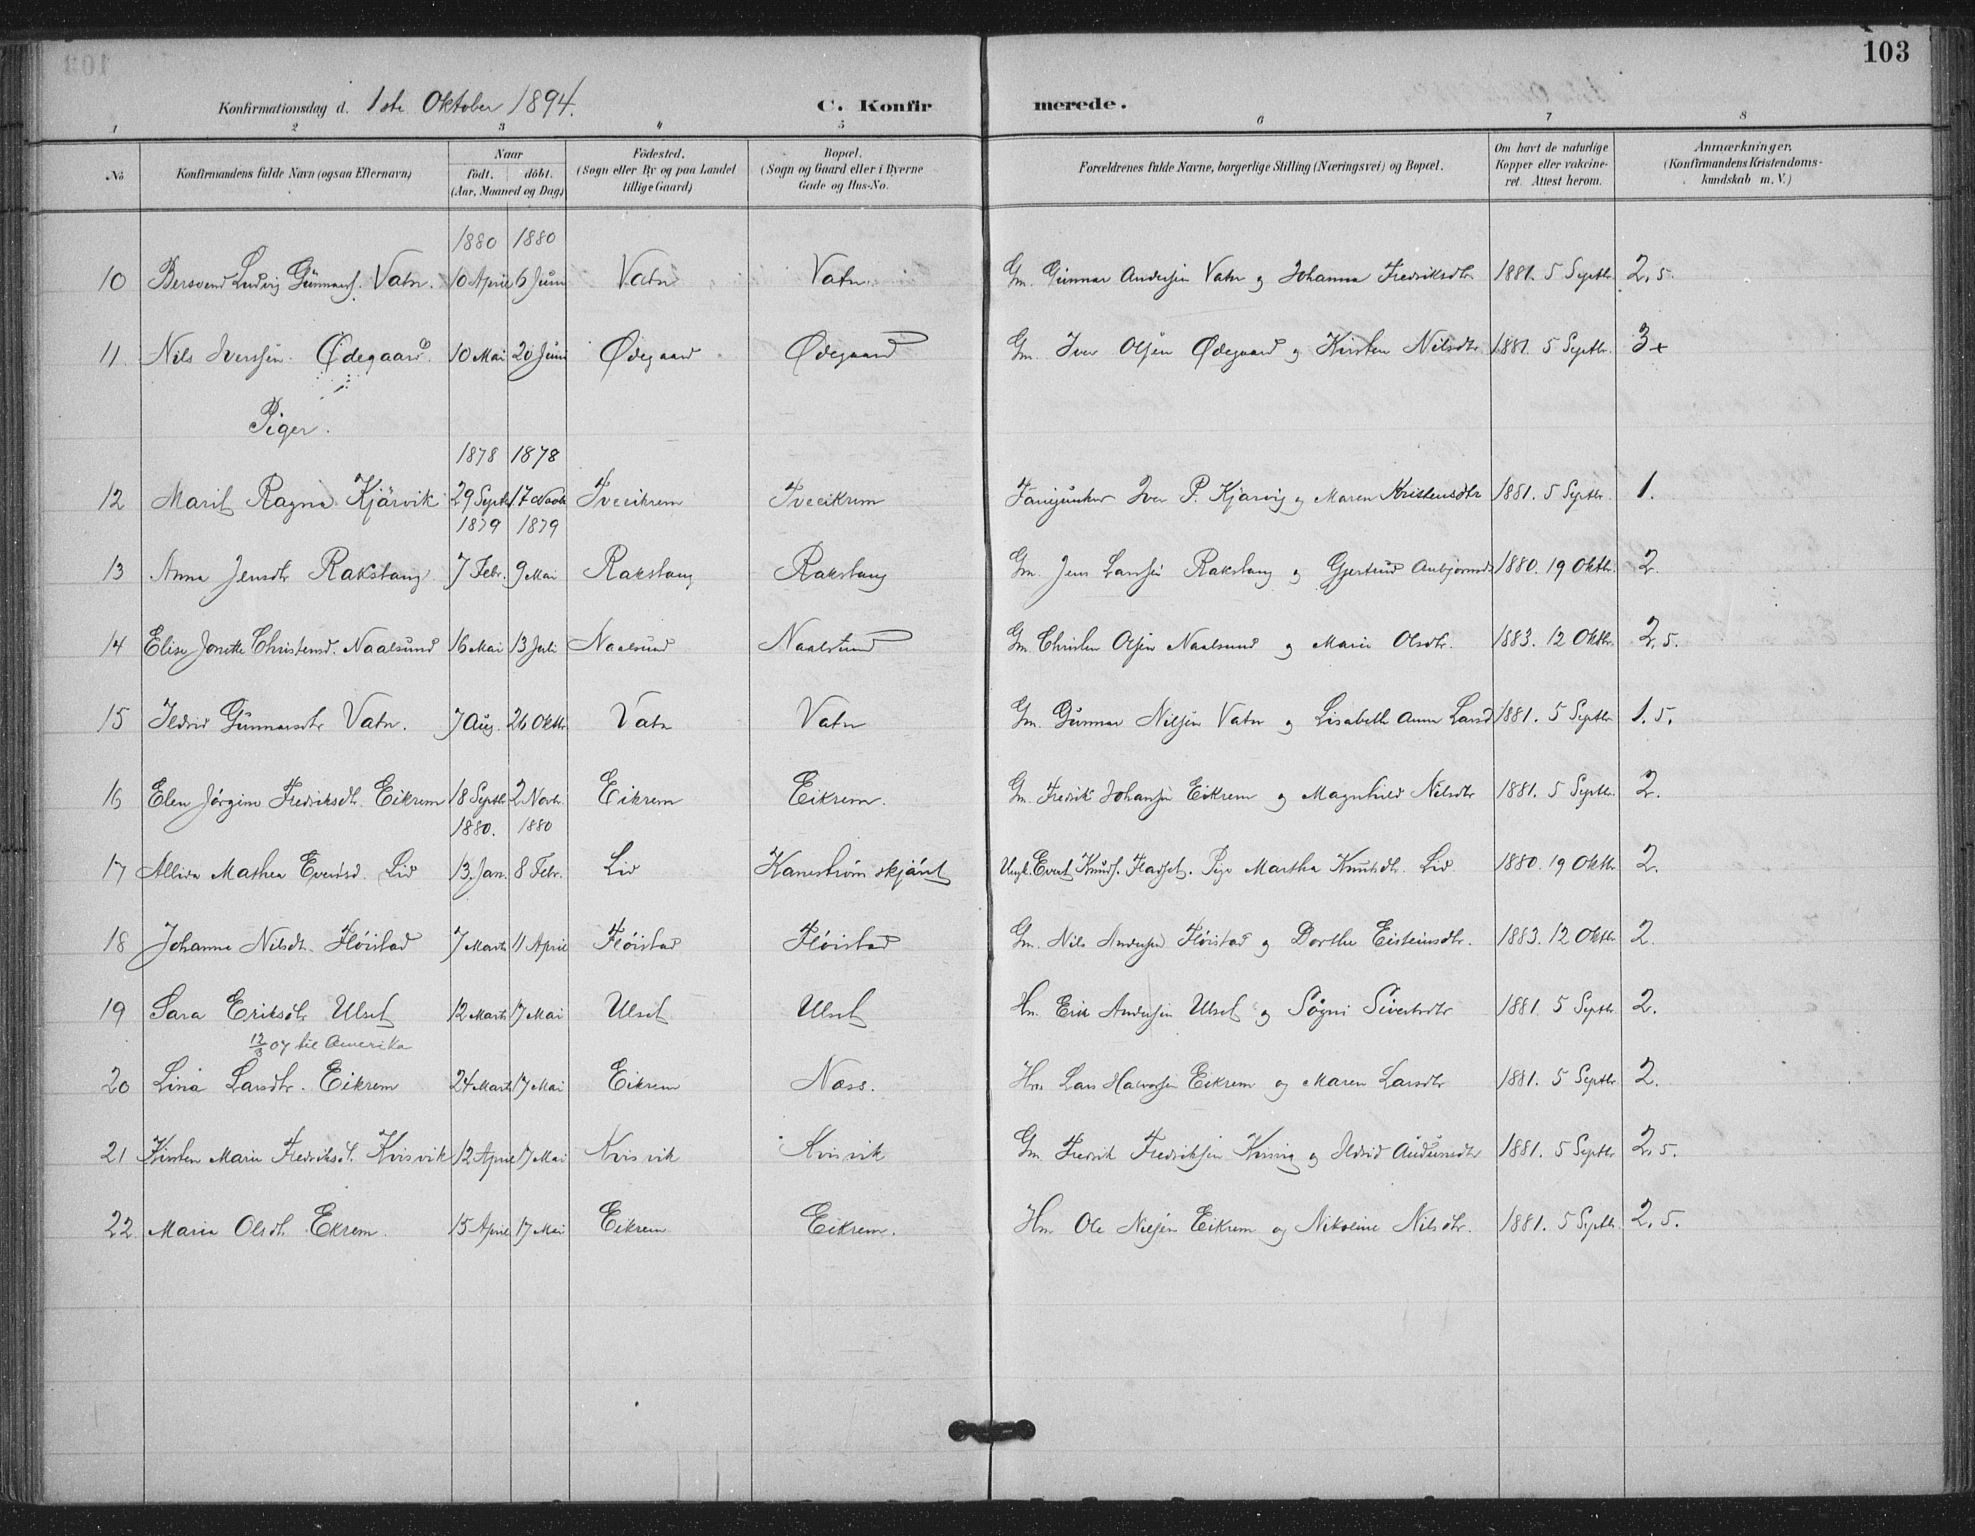 103
Konfirmationsdag d. 1ste Oktober 1894. C. Konfirmerede.
1 2 3 4 5 6 7 8
No Konfirmandens fulde Navn (ogsaa Efternavn) Naar født. døbt. (Aar, Maaned og Dag) Fødested. (Sogn eller By og paa Landet tillige Gaard) Bopæl. (Sogn og Gaard eller i Byerne Gade og Hus-No. Forældrenes fulde Navne, borgerlige Stilling (Næringsvei) og Bopæl. Om havt de naturlige Kopper eller vakcineret. Attest herom. Anmærkninger. (Konfirmandens Kristendomskundskab m. V.)
1880 1880
10 Bersvend Ludvig Gunnars. Vatn. 10 April 6 Juni Vatn Vatn. Gm. Gunnar Andersen Vatn og Johanna Fredriksdtr 1881. 5 Septbr 2,5.
11. Nils Iverssen Ødegaard. 10 Mai 20 Juni Ødegaard Ødegaard Gm. Iver Olsen Ødegaard og Kirsten Nilsdtr 1881. 5 Septbr. 3+
Piger.
1878 1878
12 Marit Ragna Kjärvik 29 Septb 17 Novb Tveeikrem Tveeikrem Fanejunker Iver P. Kjarvig og Maren Kristensdtr 1881. 5 Septbr. 1.
1879 1879
13 Anna Jensdtr Rakstang 7 Febr. 9 Mai Rakstang Rakstang Gm. Jens Larssen Rakstang og Gjertrud Anbjørnsd. 1880. 19 Oktbr. 2.
14 Elise Jonette Christensd. Naalsund 16 Mai 13 Juli Naalsund Naalsund Gm. Christen Olsen Naalsund og Marie Olsdtr. 1883. 12 Oktbr. 2,5.
15 Ildrid Gunnarsdtr Vatn. 7 Aug. 26 Oktbr Vatn Vatn Gm. Gunnar Nilsen Vatn og Lisabeth Anna Larsd 1881. 5 Septbr 1.5.
16 Elen Jørgine Fredriksdt. Eikrem 18 Septbr 2 Novb. Eikrem Eikrem. Gm. Fredrik Johansen Eikrem og Magnhild Nilsdtr 1881. 5 Septbr. 2.
1880. 1880
17 Allida Mathea Evertsd. Lid 13. Jan. 8 Febr. Lid Kanestrømskjäret Ungk. Evert Knuds. Fladset. Pige Martha Knutsdt. Lid 1880. 19 Oktbr 2.
18 Johanna Nilsdt. Fløistad 7 Marts 11 April Fløistad Fløistad Gm. Nils Andersen Fløistad og Dorthe Eisteinsdtr. 1883. 12 Oktbr 2.
19 Sara Eriksdtr Ulset 12 Marts 17 Mai Ulset Ulset Hm. Erik Andersen Ulset og Søgni Sivertsdtr 1881. 5 Septbr 2.
12/3 07 til Amerika
20 Lina Larsdtr. Eikrem 24 Marts 17 Mai Eikrem Næss. Hm Lars Halvorsen Eikrem og Maren Larsdtr 1881. 5 Septbr 2.
21 Kirsten Marie Fredriksdt. Kvisvik 12 April 17 Mai Kvisvik Kvisvik Gm Fredrik Fredriksen Kvisvig og Ildrid Audunsdtr 1881. 5 Septbr 2,5.
22 Maria Olsdt. Ekrem. 15 April 17 Mai Eikrem Eikrem. Hm Ole Nielsen Eikrem og Nikoline Nilsdtr. 1881. 5 Septb. 2,5.